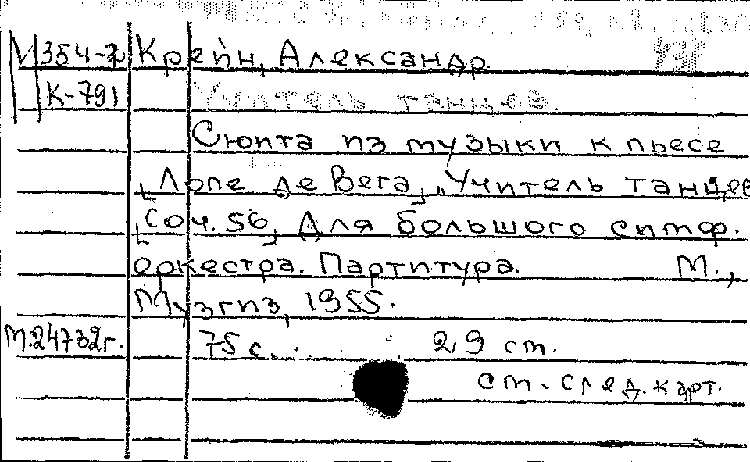 М354-2 Крейн, Александр
К-791 Учитель танцев.
Сюита из музыки к пьесе
[Лопе де Вега] „Учитель танцев
[соч. 56] Для большого симф.
оркестра. Партитура. М.,
Музгиз, 1955.
М.24732г. 75 с. 29 ст.
ст. след. карт.